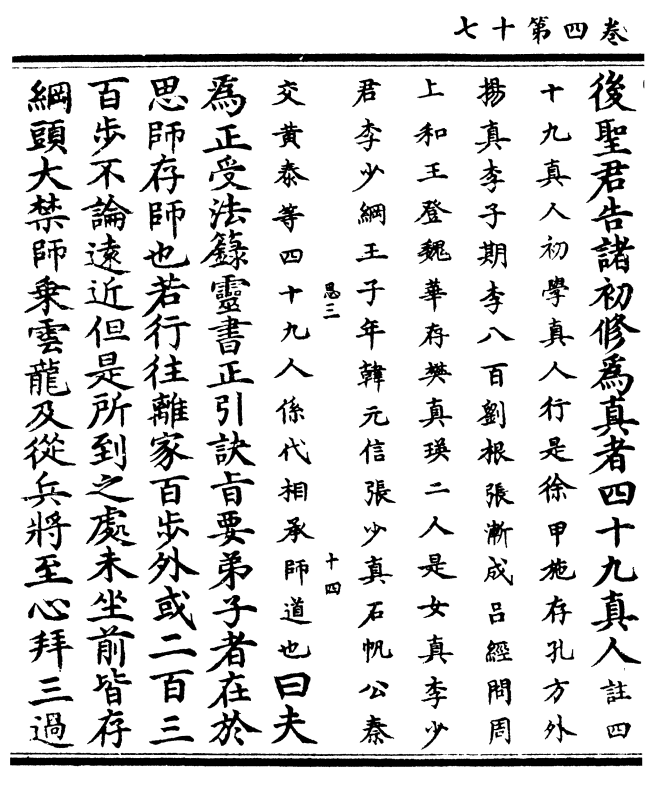 七十第四卷
後聖君告諸初修為真者四十九真人註四
十九真人初學真人行是徐甲施存孔方外
揚真李子期李八百劉根張漸成呂經問周
上和王登魏華存樊真瑛二人是女真李少
君李少綱王子年韓元信張少真石帆公秦
思三
十四
交黄泰等四十九人係代相承師道也曰夫
為正受法籙靈書正引訣旨要弟子者在於
思師存師也若行往離家百步外或二百三
百步不論遠近但是所到之處未坐前皆存
綱頭大禁師乗雲龍及從兵將至心拜三過